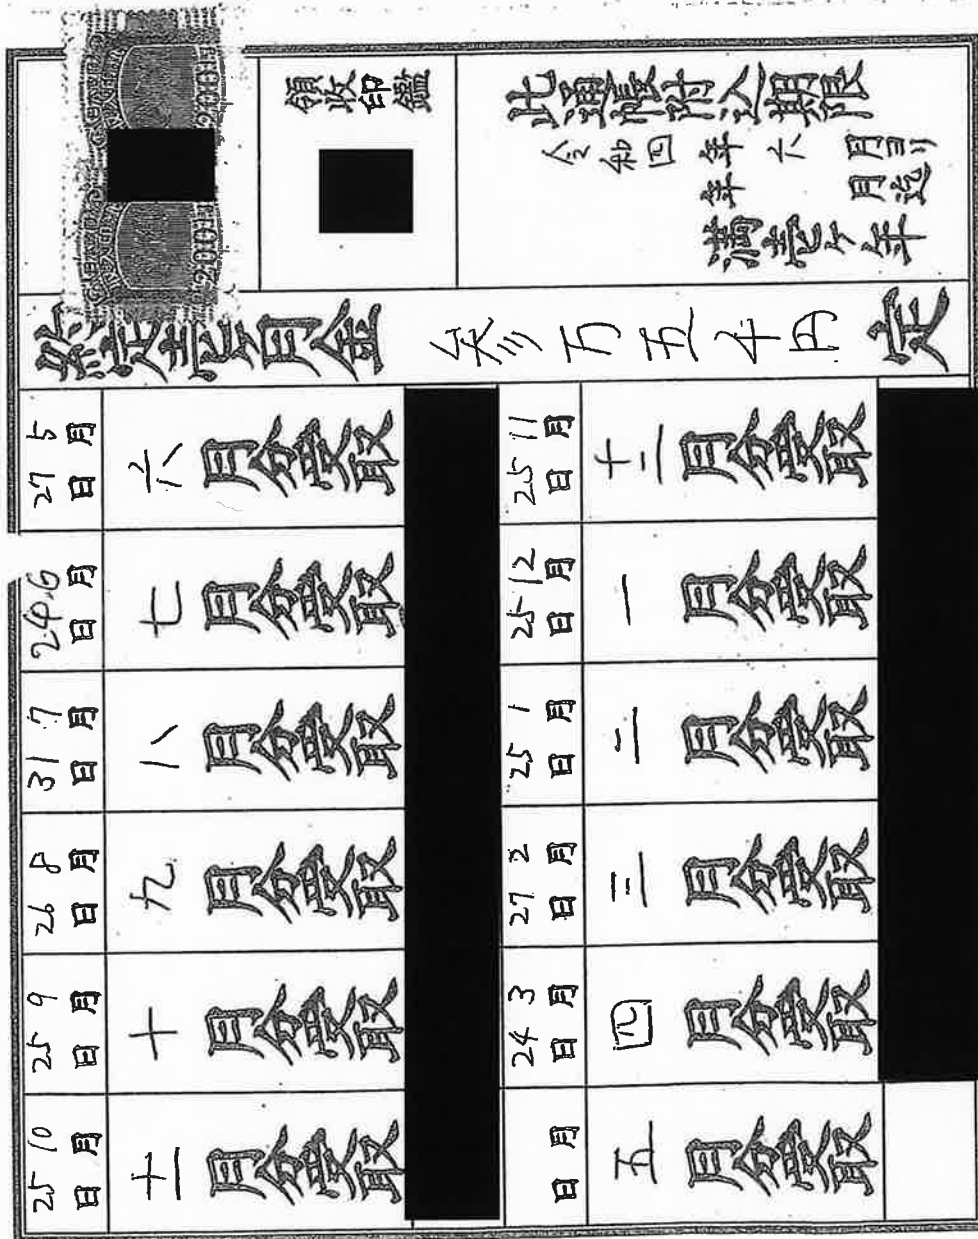 此通帳附込期限
令和四年六月ヨリ
年 月迄
満壱ヶ年
領収印鑑
200円
200円
定壱ヶ月金 参万五千円 定
5月27日 六月分受取
6月24日 七月分受取
7月31日 八月分受取
8月26日 九月分受取
9月25日 十月分受取
10月25日 十一月分受取
11月25日 十二月分受取
12月25日 一月分受取
1月25日 二月分受取
2月27日 三月分受取
3月24日 四月分受取
月 日 五月分受取